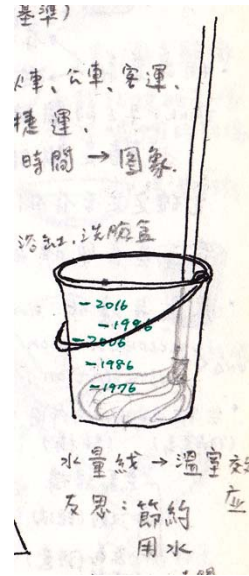 基準)
火車、公車、客運、
捷運、
時間 → 圖象.
浴缸,洗臉盆
-2016
-1996
-2006
-1986
-1976
水量線 → 溫室效應
反思:節約
用水